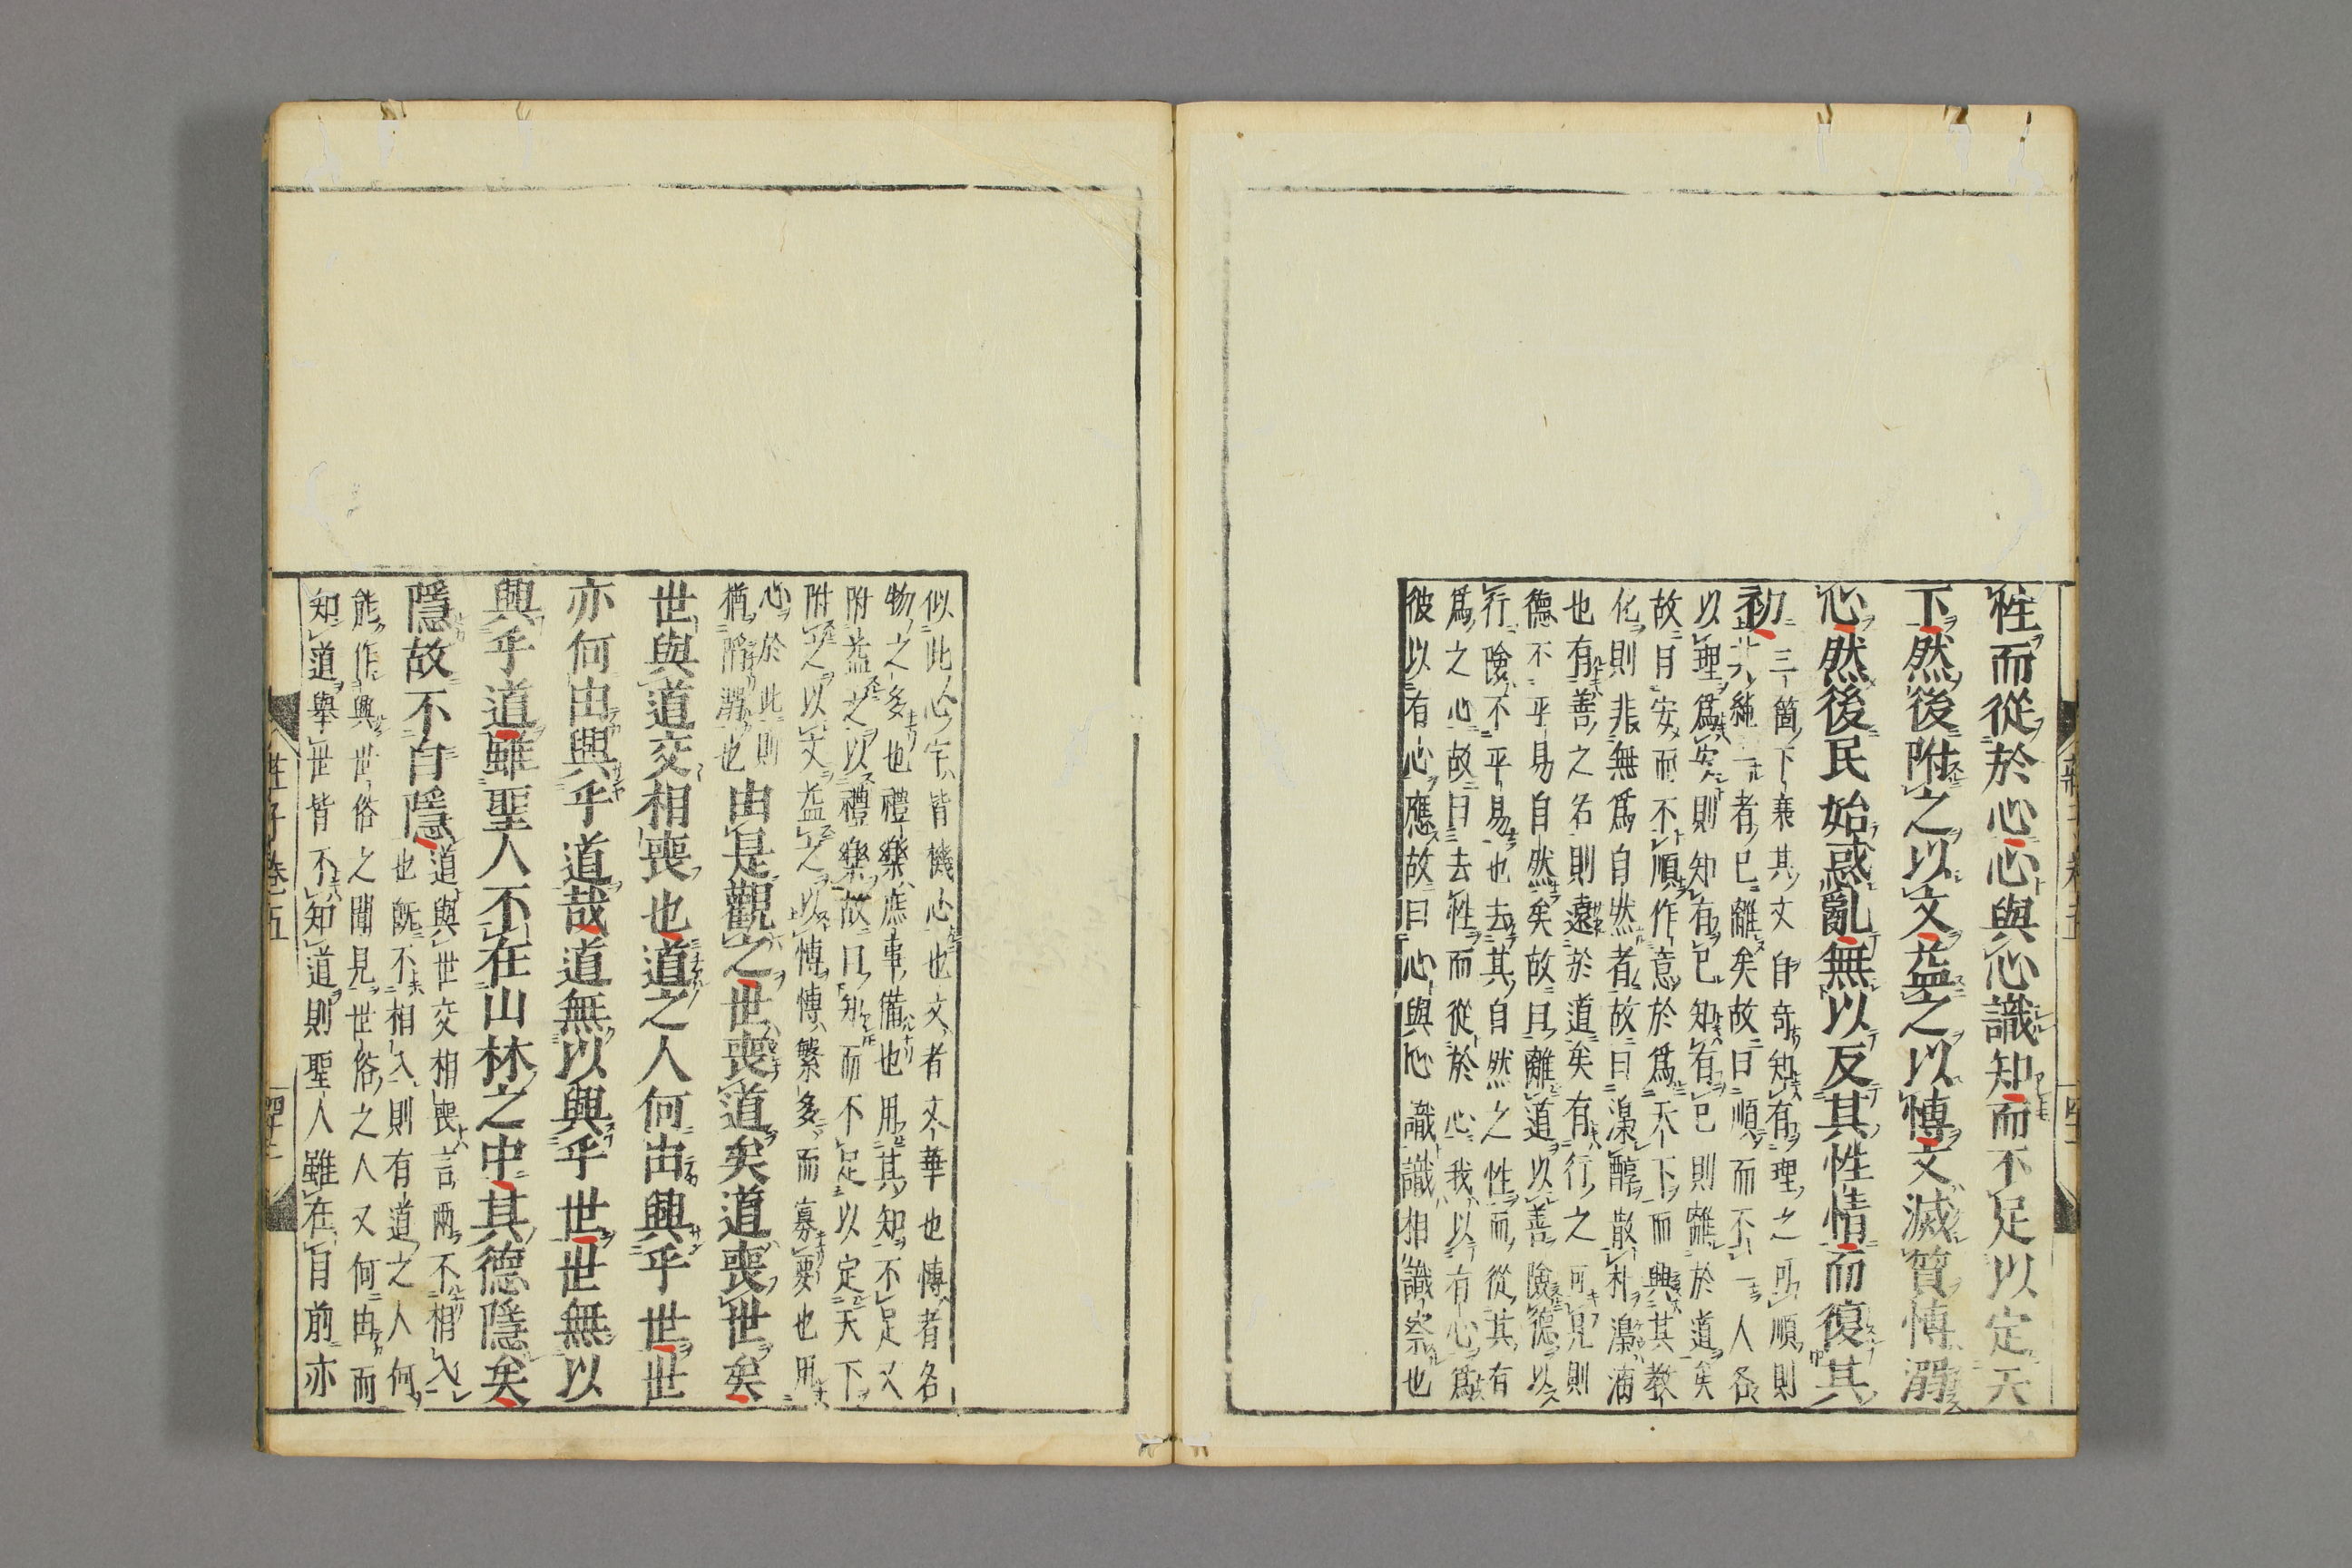 性而從於心心與心識知而不足以定天
下然後附之以文益之以博文滅質博溺
心然後民始惑亂無以反其性情而復其
初三箇下衰其文自奇知有理之可順則
純一者已離矣故曰順而不一人各
以理爲安則知有已知有已則離於道矣
故曰安而不順作意於爲天下而興其教
化則非無爲自然者故曰澆醇散朴澆漓
也有善之名則遠於道矣有行之可見則
德不平易自然矣故曰離道以善險德以
行險不平易也去其自然之性而從其有
爲之心故曰去性而從於心我以有心爲
彼以有心應故曰心與心識識相識察也
似此心字皆機心也文者文華也博者名
物之多也禮樂庶事備也用其知不足又
附益之以禮樂故曰知而不足以定天下
附之以文益之以博博繁多而寡要也用
心於此則
猶陷溺也
由是觀之世喪道矣道喪世矣
世與道交相喪也道之人何由興乎世世
亦何由興乎道哉道無以興乎世世無以
興乎道雖聖人不在山林之中其德隱矣
隱故不自隱道與世交相喪言兩不相入
也既不相入則有道之人何
能作興世俗之聞見世俗之人又何由而
知道舉世皆不知道則聖人雖在目前亦
莊子卷五